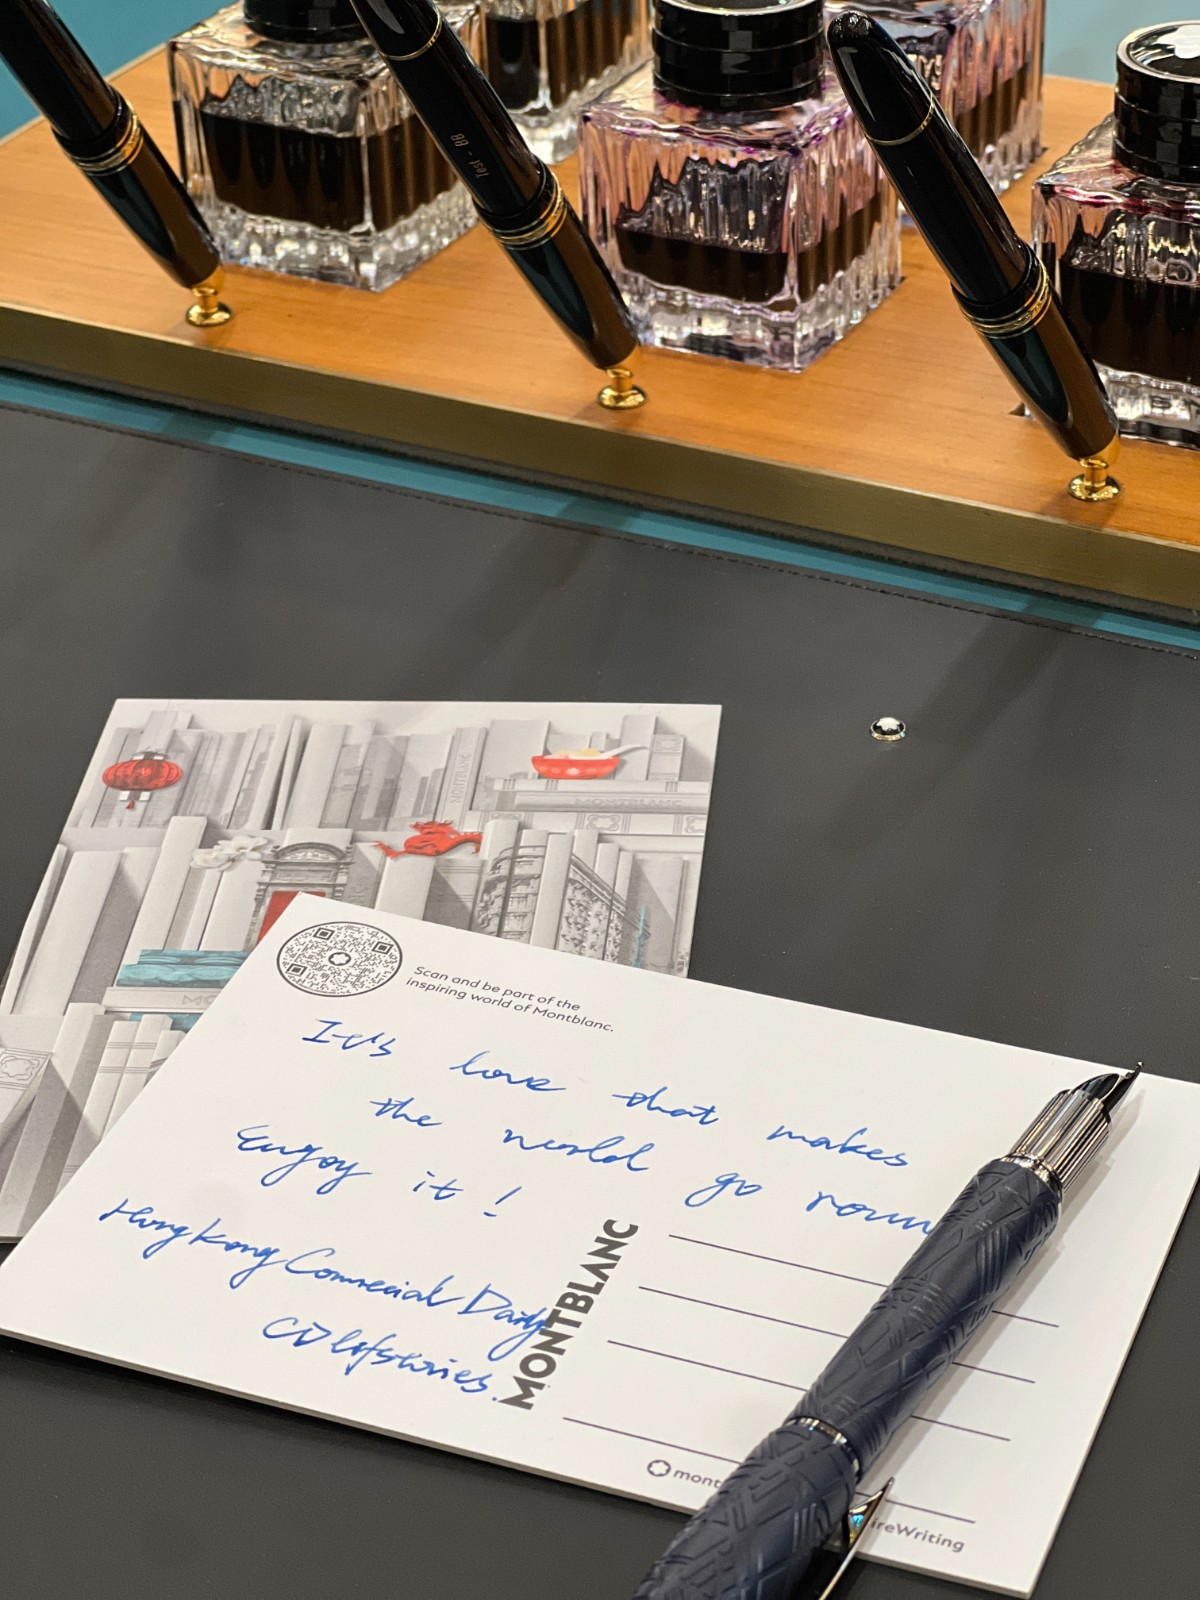 Test - BB
MONTBLANC
MONTBLANC
Scan and be part of the
inspiring world of Montblanc.
It's love that makes
the world go roun
Enjoy it!
Hong Kong Commercial Daily
CD lifstories.
MONTBLANC
mont
ireWriting